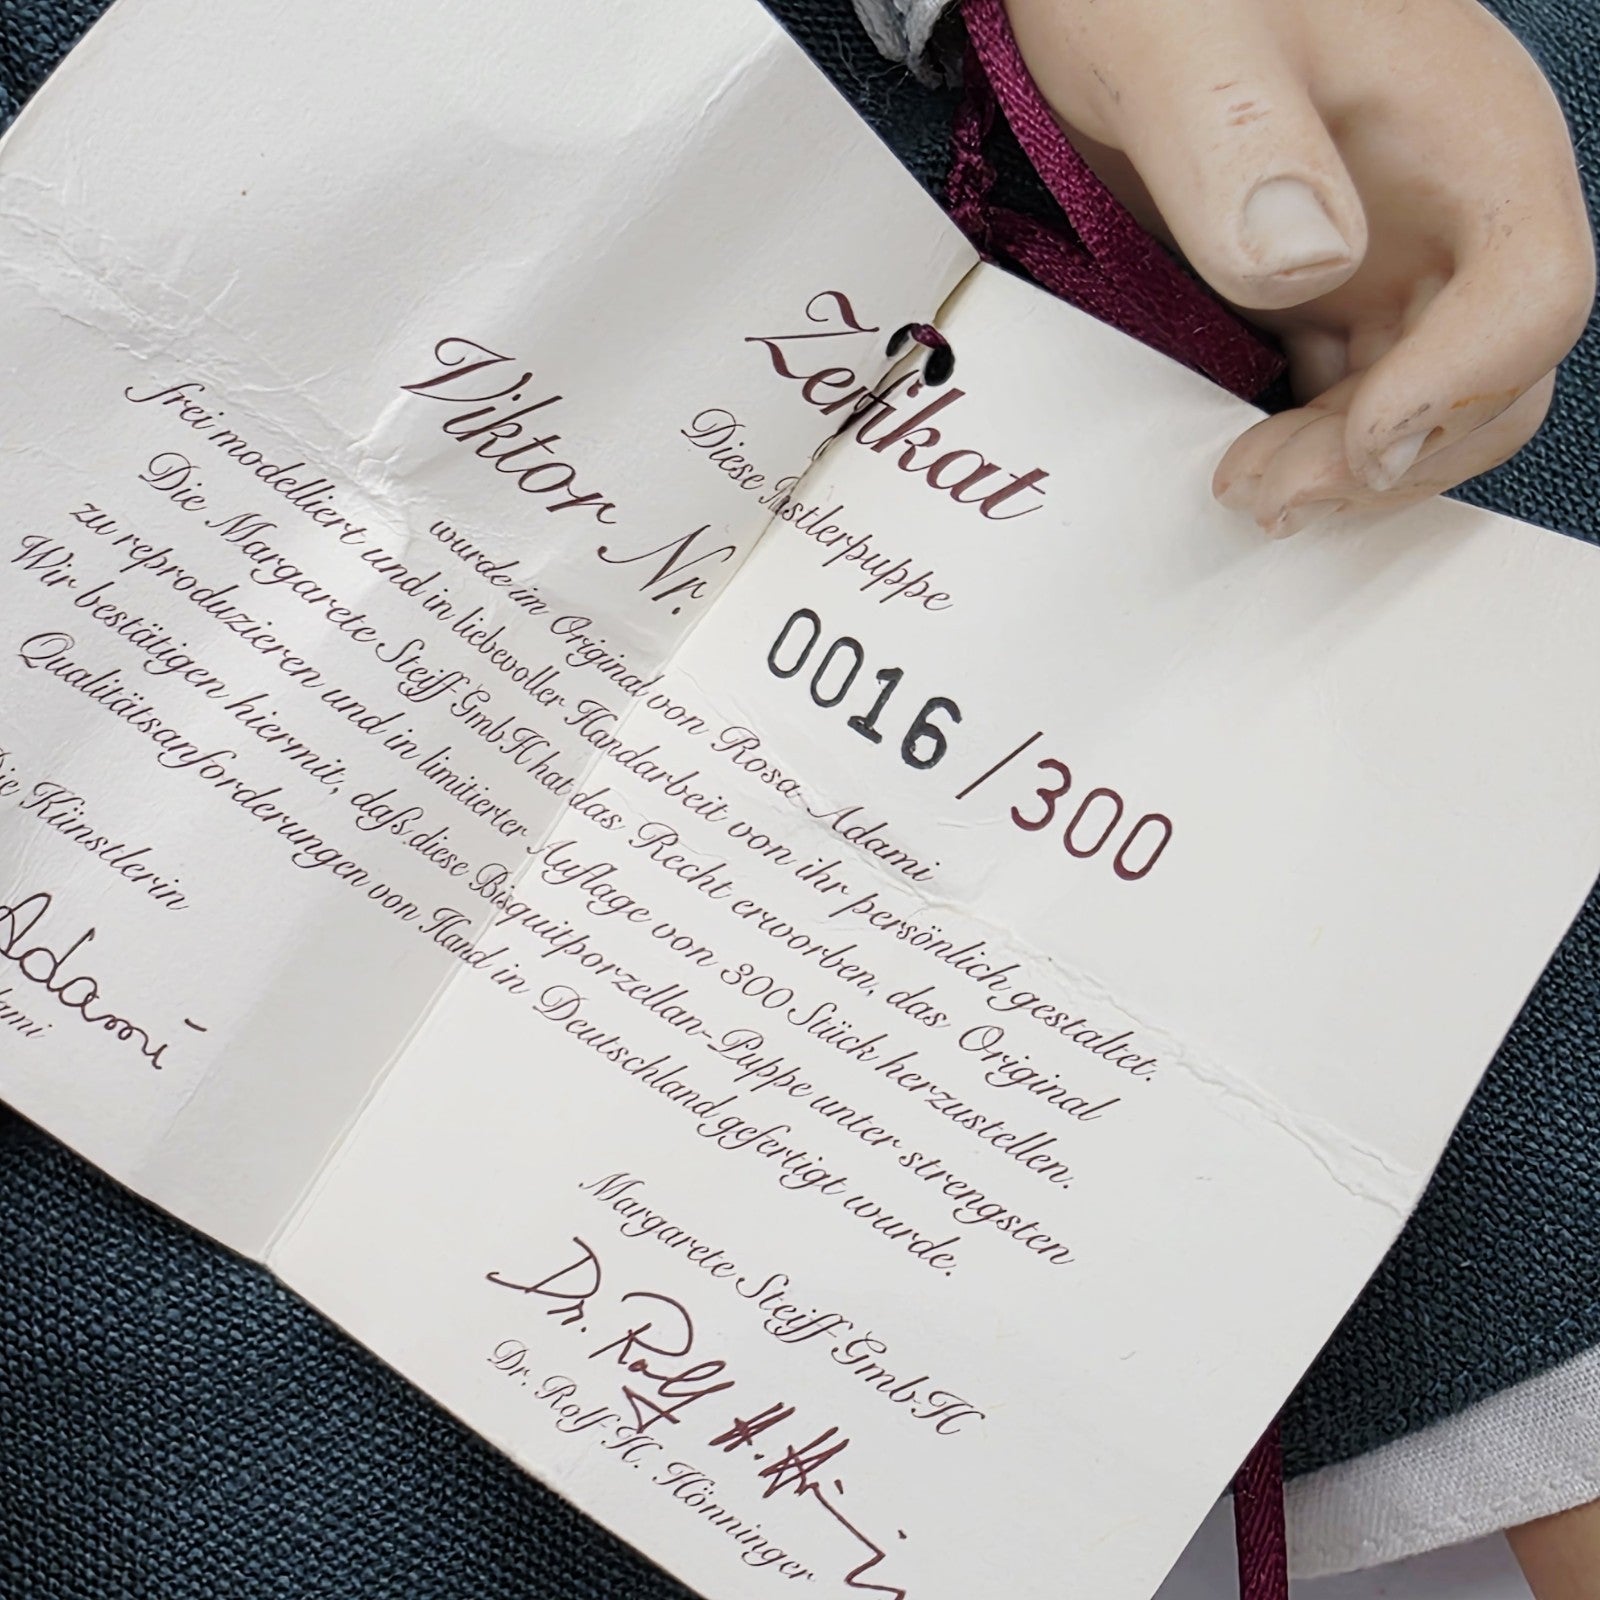 Zertifikat
Diese Künstlerpuppe
Viktor Nr. 0016 / 300
wurde im Original von Rosa Adami
frei modelliert und in liebevoller Handarbeit von ihr persönlich gestaltet.
Die Margarete Steiff GmbH hat das Recht erworben, das Original
zu reproduzieren und in limitierter Auflage von 300 Stück herzustellen.
Wir bestätigen hiermit, daß diese Bisquitporzellan-Puppe unter strengsten
Qualitätsanforderungen von Hand in Deutschland gefertigt wurde.
Die Künstlerin
Adami
Margarete Steiff GmbH
Dr. Rolf H.
Dr. Rolf-H. Hönninger